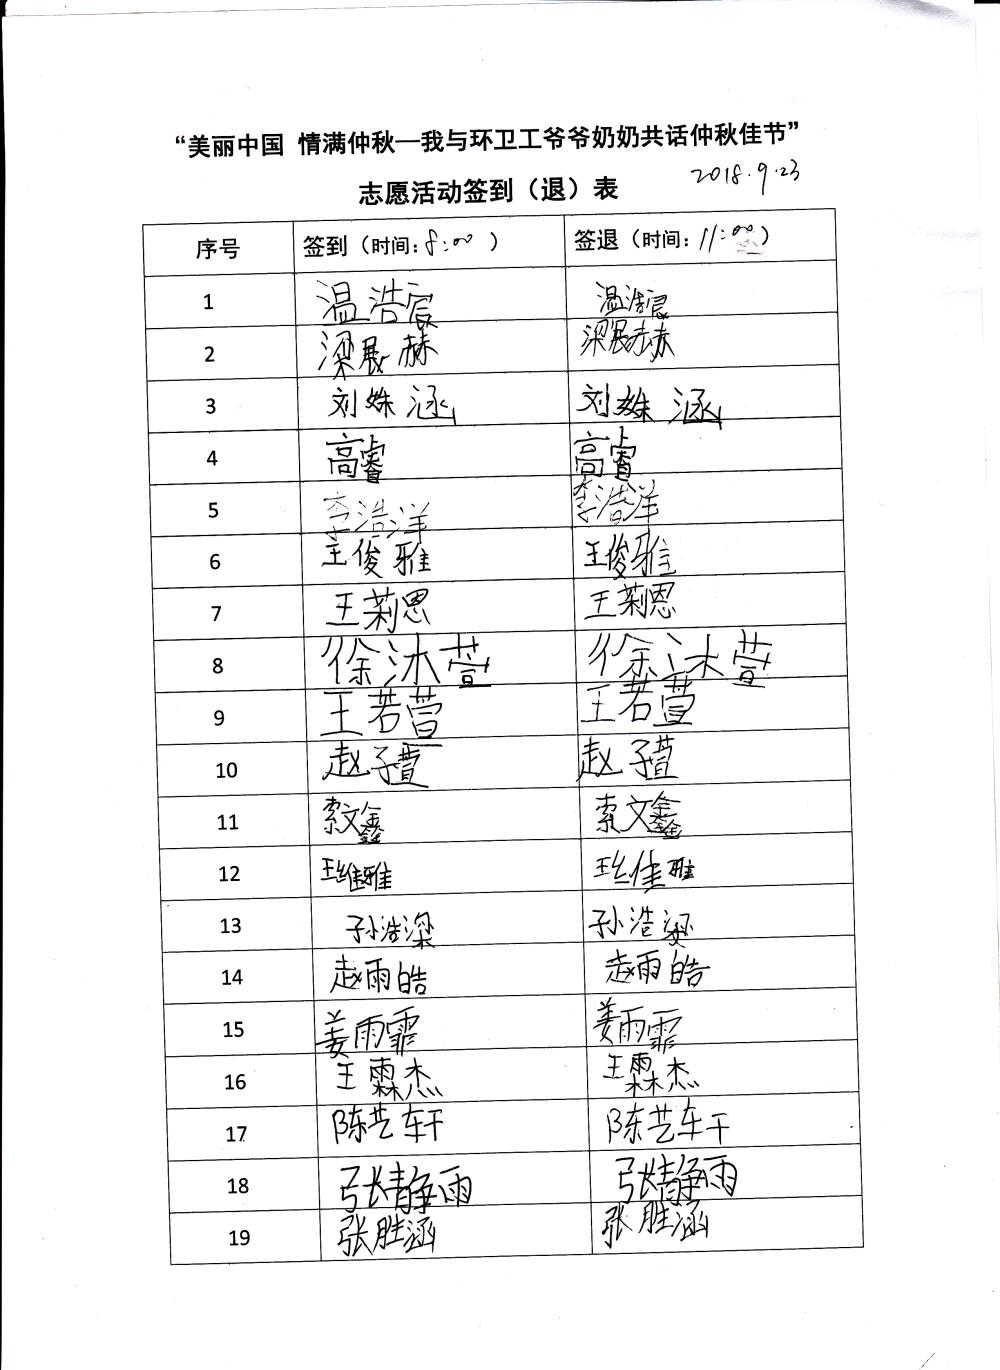 “美丽中国 情满仲秋—我与环卫工爷爷奶奶共话仲秋佳节”
2018.9.23
志愿活动签到（退）表
序号 签到（时间：8:00 ） 签退（时间：11:00）
1 温浩宸 温浩宸
2 梁展赫 梁展赫
3 刘姝涵 刘姝涵
4 高睿 高睿
5 李浩洋 李浩洋
6 王俊雅 王俊雅
7 王莉恩 王莉恩
8 徐沐萱 徐沐萱
9 王若萱 王若萱
10 赵子萱 赵子萱
11 索文鑫 索文鑫
12 王维雅
13 孙浩梁 孙浩梁
14 赵雨皓 赵雨皓
15 姜雨霏 姜雨霏
16 王霖杰 王霖杰
17 陈艺轩 陈艺轩
18 张静雨 张静雨
19 张胜涵 张胜涵